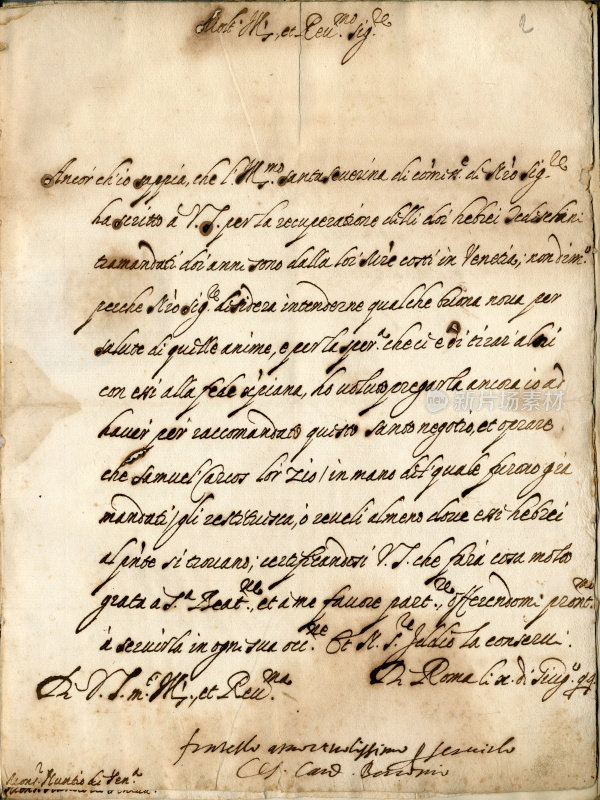 2
Molt' Ill.re et Reu.mo Sig.re
Ancor ch'io sappia, che l'Ill.mo Santa Seuerina di com.ne di N'ro Sig.re
ha scritto à V.S. per la recuperatione delli doi hebrei
tramandati doi anni sono dalla lor costì in Venetia; nondim.o
perche N'ro Sig.re desidera intenderne qualche buona noua per
salute di quelle anime, e per la sper.a che ci è di tirar altri
con essi alla fede xpiana, ho uoluto pregarla ancora io ad
hauer per raccomandato questo santo negotio, et oprare
che Samuel lor Zio in mano del quale furono
mandati gli restituisca, ò reueli almeno doue essi hebrei
al p'nte si trouano; certificandosi V.S. che farà cosa molto
grata a S.a Beat.ne, et à me fauore part.re, offerendomi pront.mo
à seruirla in ogni sua occ.ne Et N. S.re Iddio la conserui.
Di V.S. m.to Ill.re et Reu.ma Di Roma li di Giug.o 94
fratello amoreuolissimo per seruirlo
Card.
Mons.r Nuntio di Ven.a
new 新片场素材